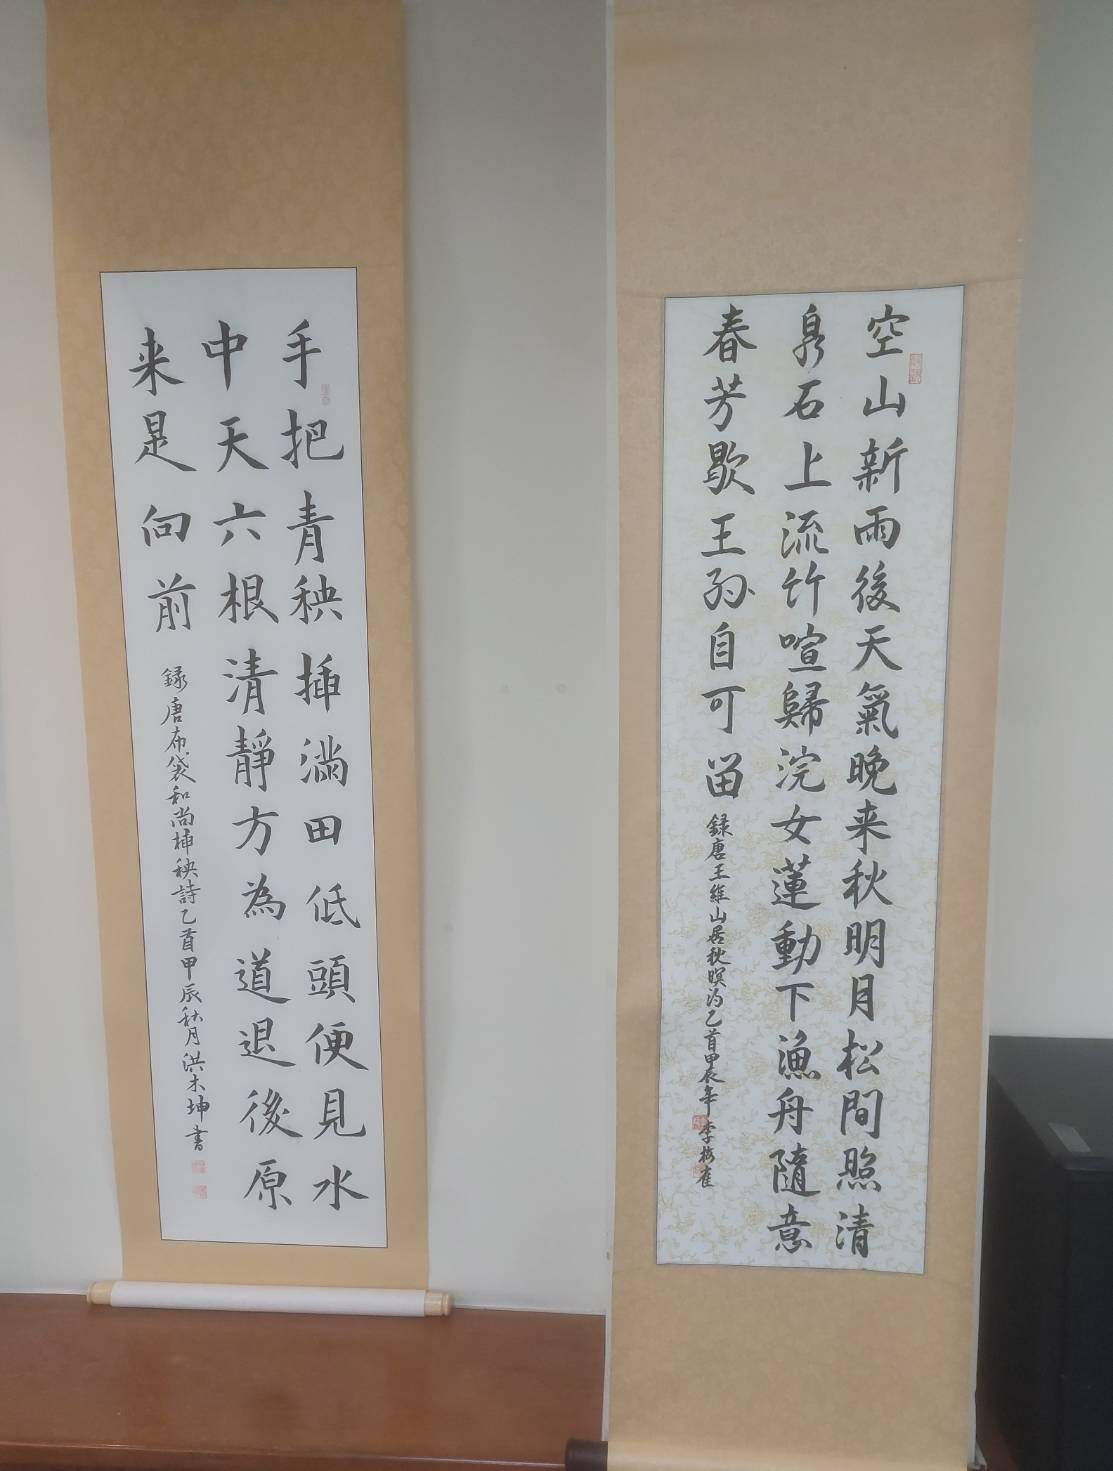 空山新雨後天氣晚来秋明月松間照清
泉石上流竹喧歸浣女蓮動下漁舟隨意
春芳歇王孫自可留
録唐王維山居秋暝詩乙首甲辰年 李梅崔
手把青秧插滿田低頭便見水
中天六根清靜方為道退後原
来是向前
録唐布袋和尚插秧詩乙首甲辰秋月洪木坤書